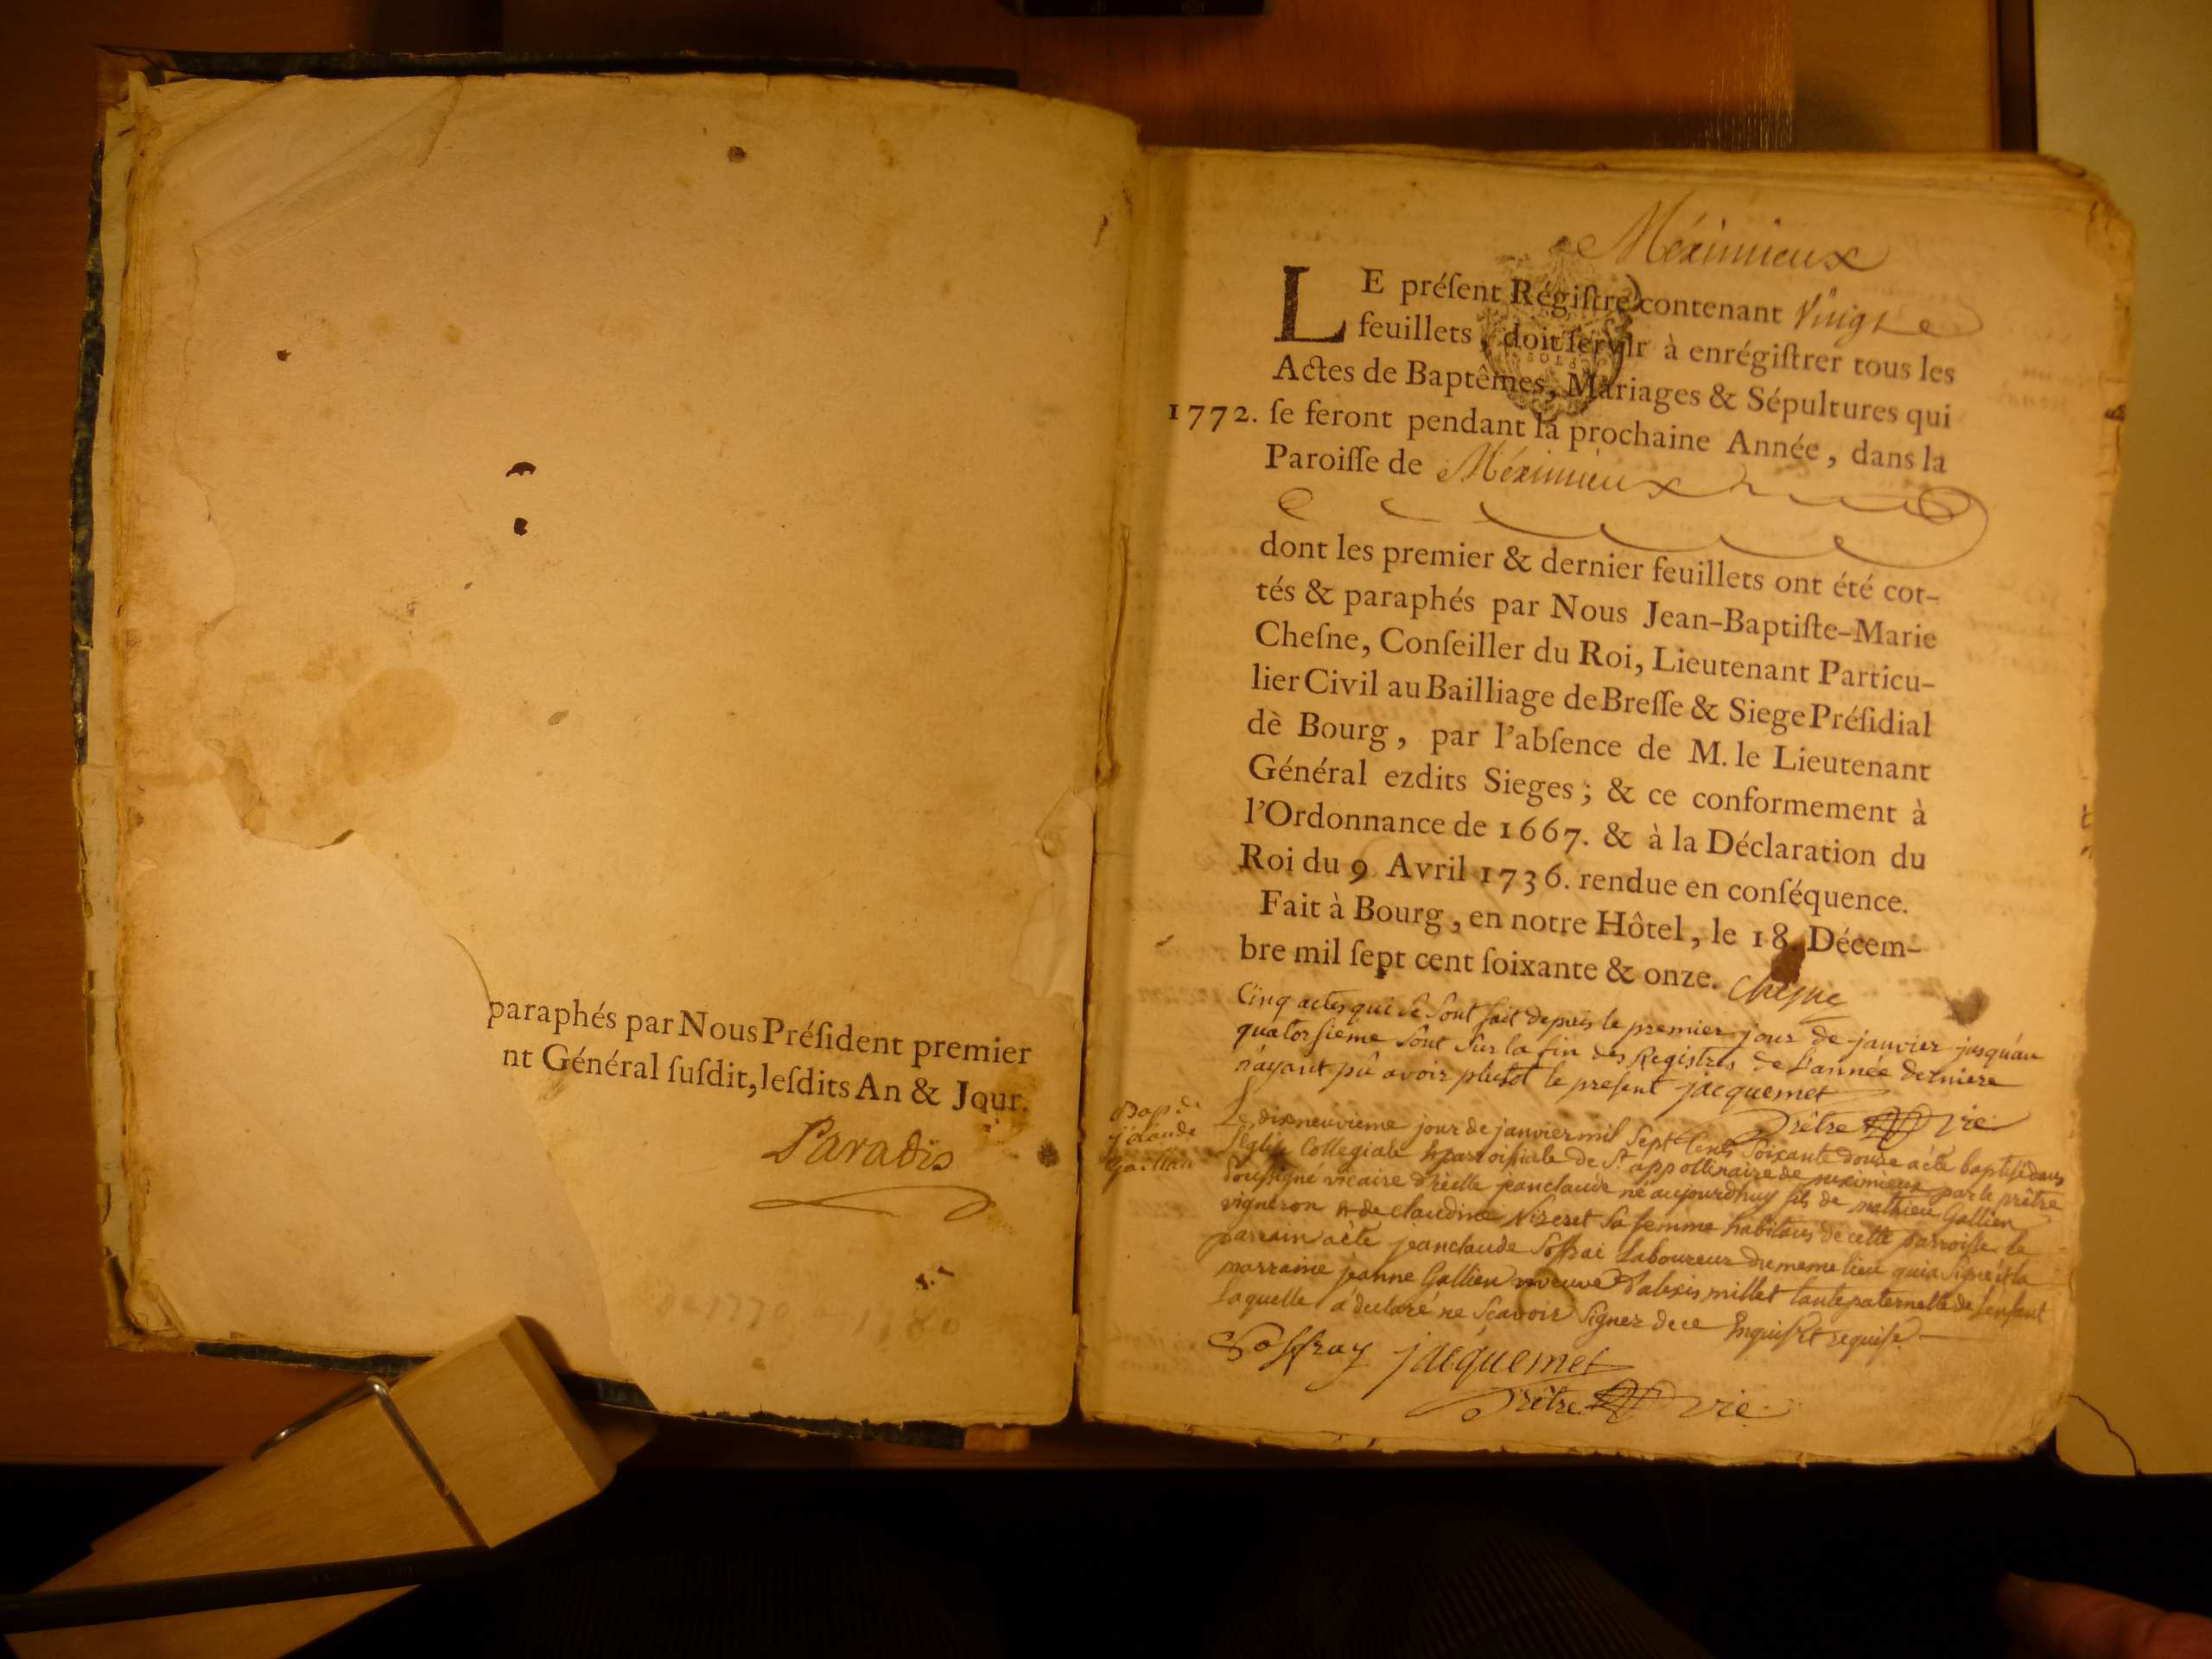 paraphés par Nous Préſident premier
nt Général ſuſdit, leſdits An & Jour.
Paradis
Méximieux
LE préſent Régiſtre contenant Vingt
feuillets, doit ſervir à enrégiſtrer tous les
Actes de Baptêmes, Mariages & Sépultures qui
1772. ſe feront pendant la prochaine Année, dans la
Paroiſſe de Méximieux
dont les premier & dernier feuillets ont été cot-
tés & paraphés par Nous Jean-Baptiſte-Marie
Cheſne, Conſeiller du Roi, Lieutenant Particu-
lier Civil au Bailliage de Breſſe & Siege Préſidial
dè Bourg, par l'abſence de M. le Lieutenant
Général ezdits Sieges; & ce conformement à
l'Ordonnance de 1667. & à la Déclaration du
Roi du 9 Avril 1736. rendue en conſéquence.
Fait à Bourg, en notre Hôtel, le 18. Décem-
bre mil ſept cent ſoixante & onze. Chesne
Cinq actes qui se sont fait depuis le premier jour de janvier jusqu'au
quatorsieme sont sur la fin des Registres de l'année derniere
n'ayant pû avoir plutot le present jacquemet
Prêtre vic
Bap. de
j. claude
Gallien
Le dixneuvieme jour de janvier mil sept cents soixante douze a été baptisé dans
l'Eglise Collegiale & parroissiale de St. appollinaire de meximieux par le prêtre
soussigné vicaire d'icelle jeanclaude né aujourdhuy fils de mathieu Gallien
vigneron & de claudine Nizeret sa femme habitans de cette parroisse le
parrain a été jeanclaude Soffrai Laboureur du meme lieu qui a signé & la
marraine jeanne Gallien veuve d'alexis millet tante paternelle de l'enfant
Laquelle a déclaré ne sçavoir signer de ce Enquise & requise
Soffray jacquemet
Prêtre vic